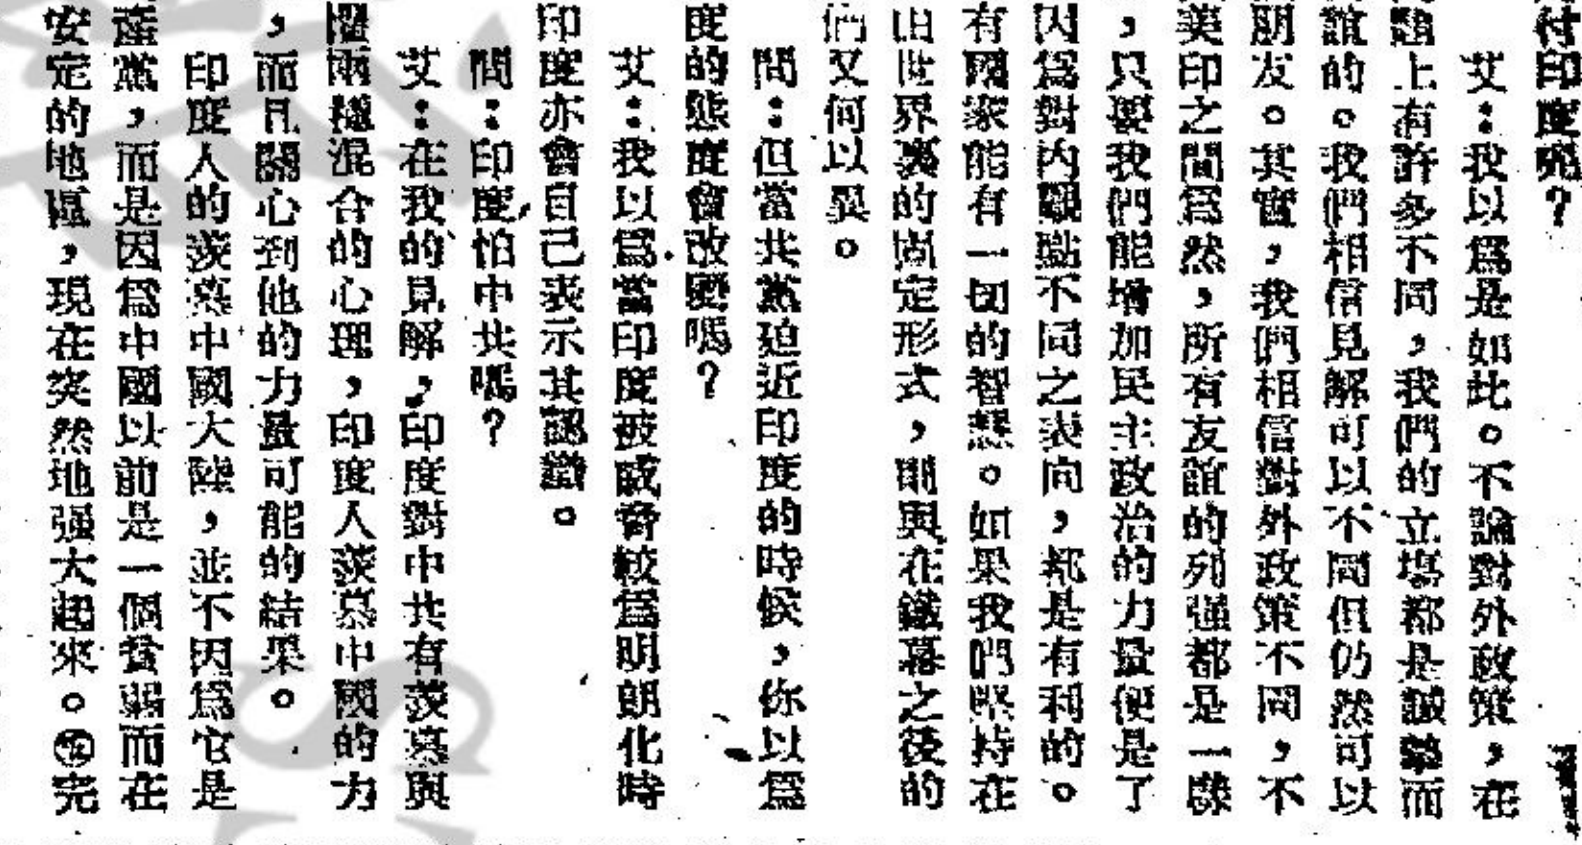 付印度呢？
艾：我以爲是如此。不論對外政策，在
問題上有許多不同，我們的立場都是誠摯而
友誼的。我們相信見解可以不同但仍然可以
朋友。其實，我們相信對外政策不同，不
美印之間爲然，所有友誼的列强都是一樣
，只要我們能增加民主政治的力量便是了
因爲對內觀點不同之表向，都是有利的。
有國家能有一切的智慧。如果我們堅持在
由世界裏的固定形式，則與在鐵幕之後的
們又何以異。
問：但當共黨迫近印度的時候，你以爲
度的態度會改變嗎？
艾：我以爲當印度被威脅較爲明朗化時
印度亦會自己表示其認識。
問：印度怕中共嗎？
艾：在我的見解，印度對中共有羨慕與
懼兩種混合的心理，印度人羨慕中國的力
，而且關心到他的力量可能的結果。
印度人的羨慕中國大陸，並不因爲它是
產黨，而是因爲中國以前是一個貧弱而在
安定的地區，現在突然地强大起來。㊣完